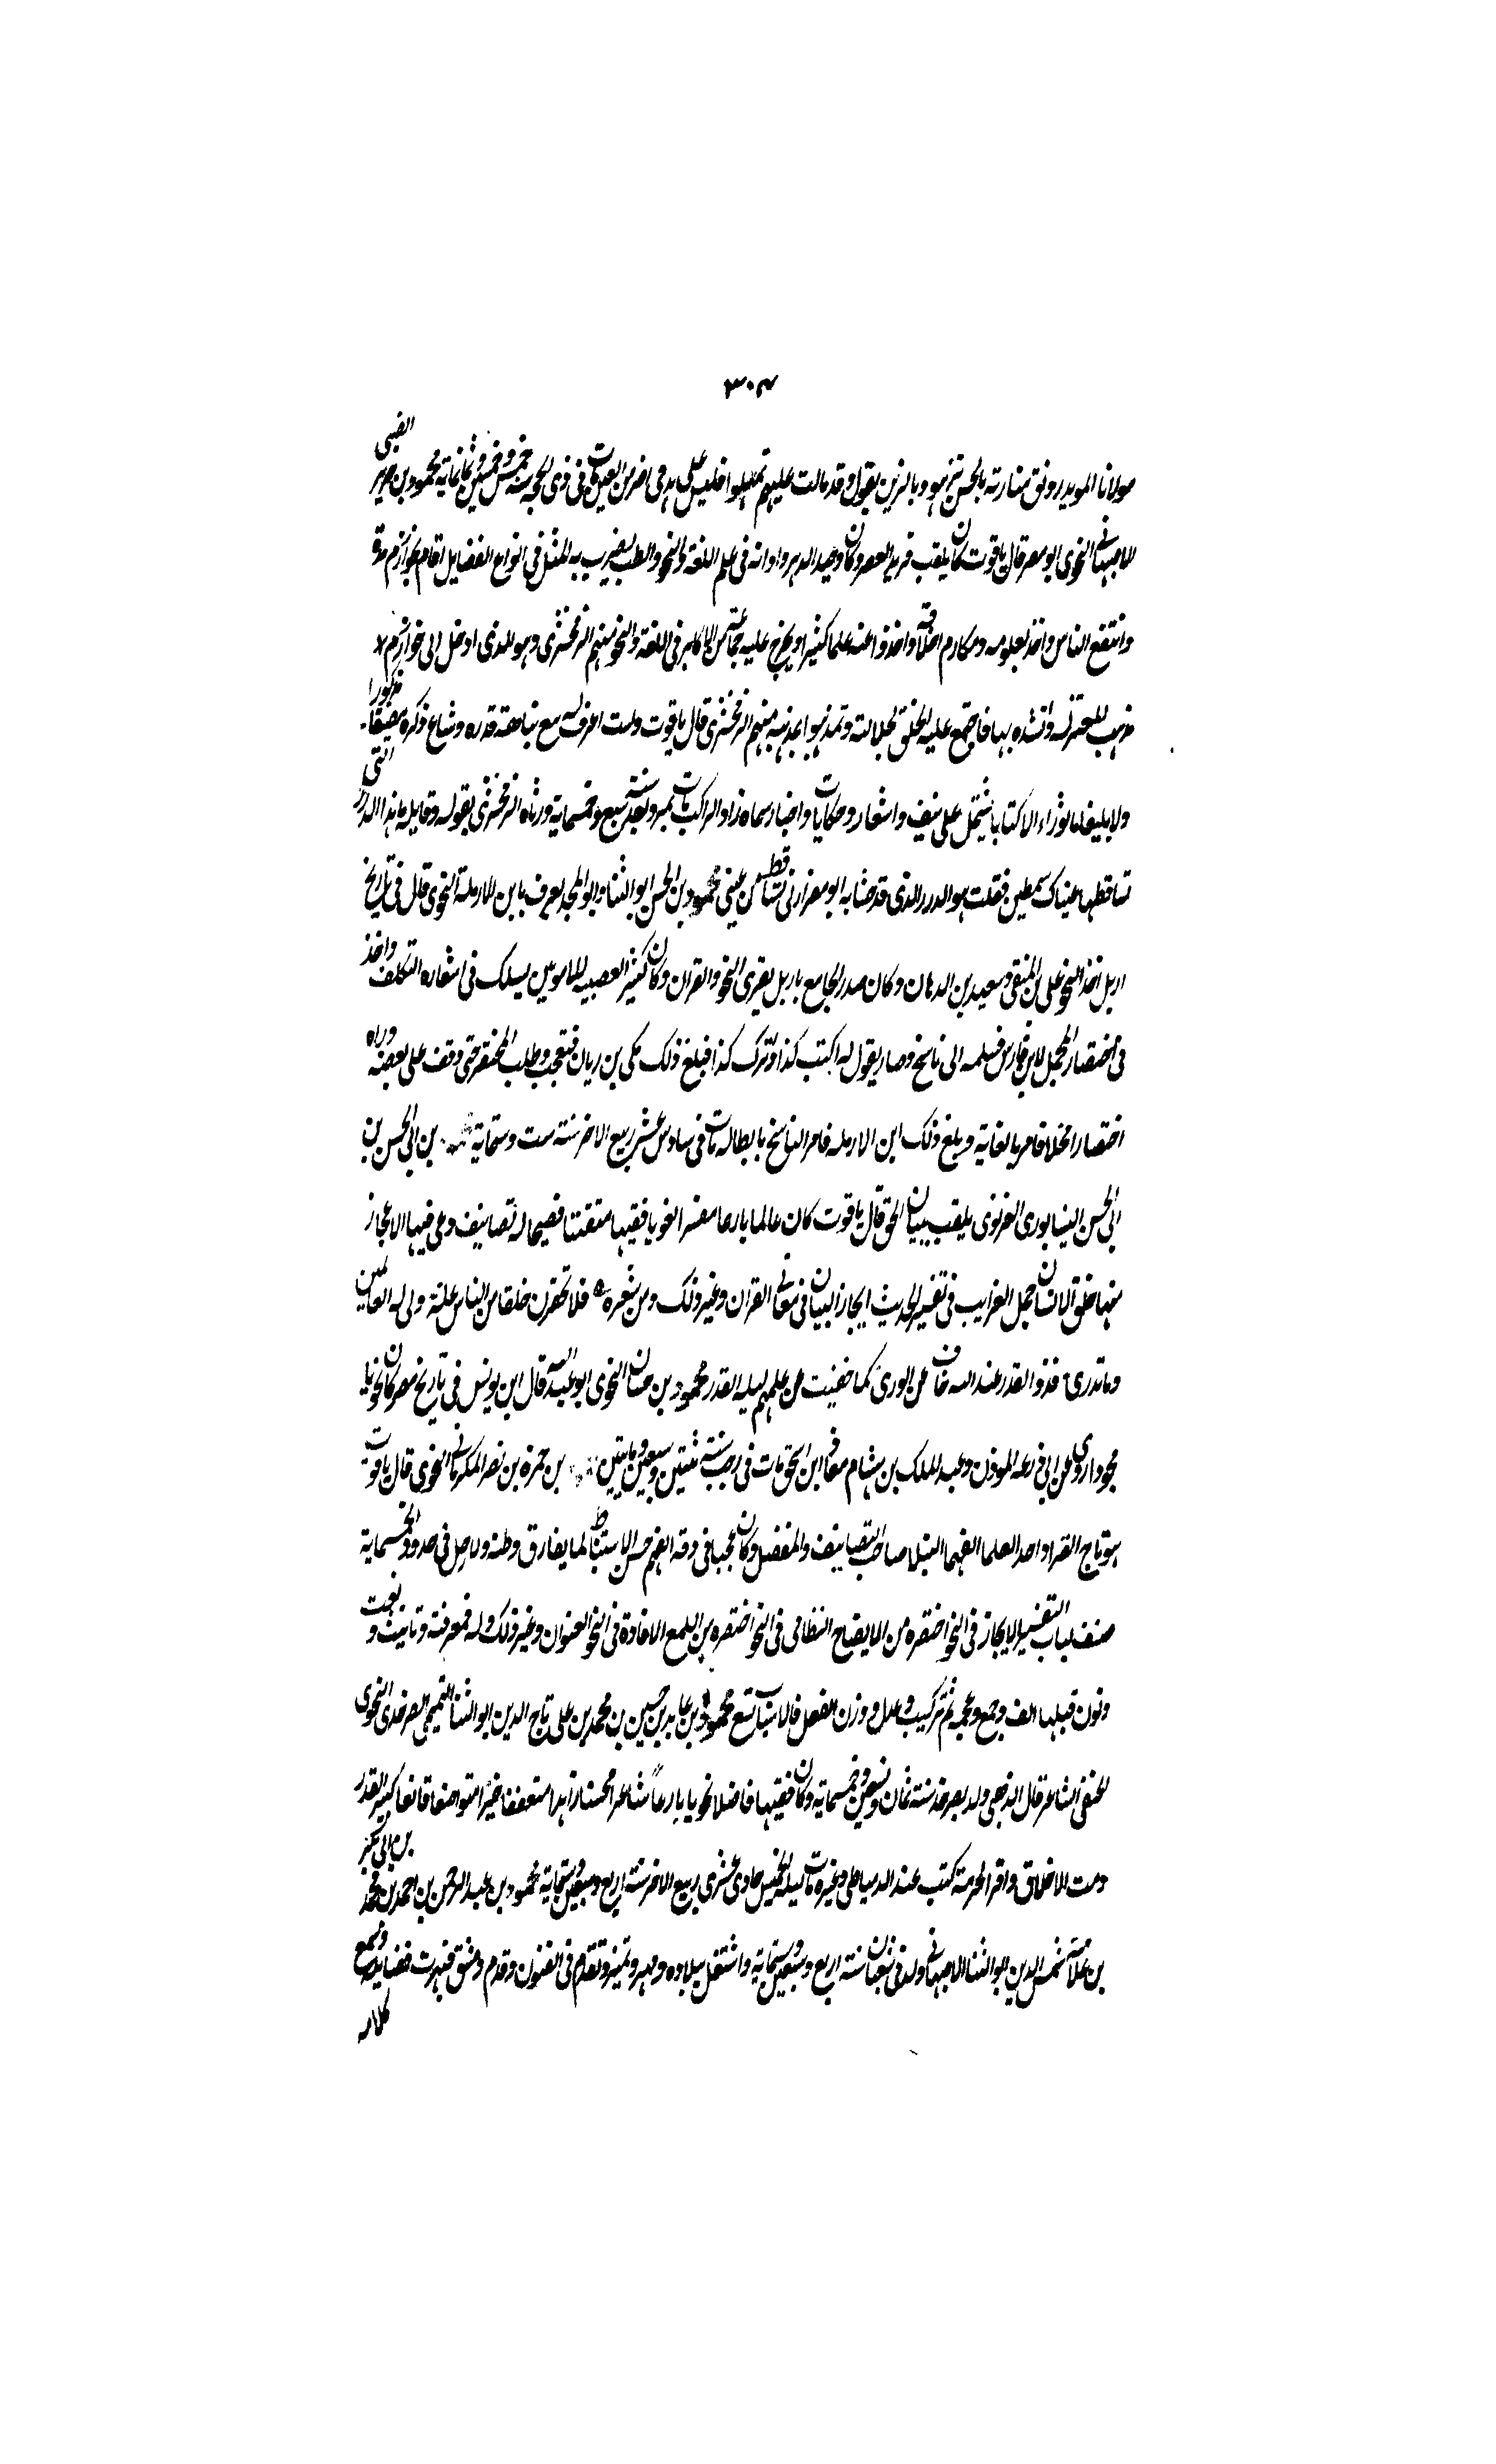 ٣٠٣
مولانا المويد رونق منارته بالحسن تزهو وبالزين يقول وقد مالت عليهم تمهلوا فليس على هدمى اضر من العين مات فى ذى الحجه سنه خمس وخمسين وثمانماية محمود بن جرير الضبى
الاصبهانى النحوى ابو مضر قال ياقوت كان يلقب فريد العصر وكان وحيد الدهر واوانه فى علم اللغة والنحو والطب يضرب به المثل فى انواع الفضايل اقام بخوارزم مدة
وانتفع الناس واخذ بعلومه ومكارم اخلاقه واخذوا عنه علما كثيرا وتخرج عليه جماعة من الاكابر فى اللغة والنحو منهم الزمخشرى وهو الذى ادخل الى خوارزم
مذهب المعتزله ونشره بها فاجتمع عليه الخلق لجلالته وتمذهبوا بمذهبه منهم الزمخشرى قال ياقوت ولست اعرف له مع نباهة قدره وشياع ذكره مصنفا مذكورا
ولا تاليفا ماثورا الا كتابا يشتمل على نتف واشعار وحكايات واخبار سماه زاد الراكب مات بمرو سنة سبع وخمسماية ورثاه الزمخشرى بقوله وقايلة ما هذا الدرر التى
تساقطها عيناك سمطين سمطين فقلت هو الدرر الذى قد حشا به ابو مضر اذنى تساقط من عينى محمود بن الحسن ابو الثنا وابو المجد يعرف بابن الارملة النحوى قال فى تاريخ
اربل اخذ النحو على بن المنقى وسعيد بن الدهان وكان صدر الجامع باربل يقرى النحو والقران وكان كثير العصبيه للامويين يسلك فى اشعاره التكلف واخذ
فى اختصار المجمل لابن فارس فسلمه الى ناسخ وصار يقول له اكتب كذا واترك كذا فبلغ ذلك مكى بن ريان فتعجب وطلب المختصر حتى وقف على بعضه وراه
اختصارا مخلا فامر بالغاية وبلغ ذلك ابن الارمله فامر الناسخ بابطاله مات فى سادس عشر ربيع الاخر سنة ست وستماية بن ابى الحسن بن
ابى الحسن النيسابورى الغزنوى يلقب ببيان الحق قال ياقوت كان عالما بارعا مفسرا لغويا فقيها متفننا فصيحا له تصانيف وعى فيها الاعجاز
منها خلق الانسان جمل الغرايب فى تفسير الحديث ايجاز البيان فى معانى القران وغير ذلك ومن شعره فلا تحقرن خلقا من الناس عله ولى اله العالمين
وما تدرى فذو القدر عند الله خاف عن الورى كما خفيت عن علمهم ليله القدر محمود بن حسان النحوى ابو عبد الله قال ابن يونس فى تاريخ مصر كان نحويا
مجودا روى عن ابى زرعه الموذن وعبد الملك بن هشام مغازى ابن اسحق مات فى رجب سنة ثنتين وسبعين وماتين بن حمزه بن نصر الكرمانى النحوى قال ياقوت
هو تاج القراء واحد العلما الفهما النبلا صاحب التصانيف والفضل وكان عجبا فى دقه الفهم وحسن الاستنباط لما يفارق وطنه ولا رحل فى حدود الخمسماية
صنف لباب التفسير الايجاز فى النحو اختصره من الايضاح النظامى فى النحو اختصره من اللمع الافادة فى النحو العنوان وغير ذلك وله فمعرفة وتانيث ونعت و
ونون قبلها الف وجمع وعجمة ثم تركيب وعدل ووزن الفعل فالاسباب تسع محمود بن عابد بن حسين بن محمد بن على تاج الدين ابو الثنا التميمى الصرخدى النحوى
الحنفى الشاعر قال الذهبى ولد بصرخد سنة ثمان وتسعين وخمسماية وكان فقيها فاضلا نحويا بارعا شاعرا محسنا زاهدا متعففا خيرا متواضعا قانعا كبير القدر
دمث الاخلاق وافر الحرمة كتب عنه الدمياطى وغيره مات ليله الخميس حادى عشرى ربيع الاخر سنة اربع وسبعين وستماية محمود بن عبد الرحمن بن احمد بن محمد بن ابى بكر
بن على شمس الدين ابو الثنا الاصبهانى ولد فى شعبان سنة اربع وسبعين وستماية واشتغل ببلاده ومهر وتميز وتقدم فى الفنون وقدم دمشق فبهرت فضايله وسمع
كلامه